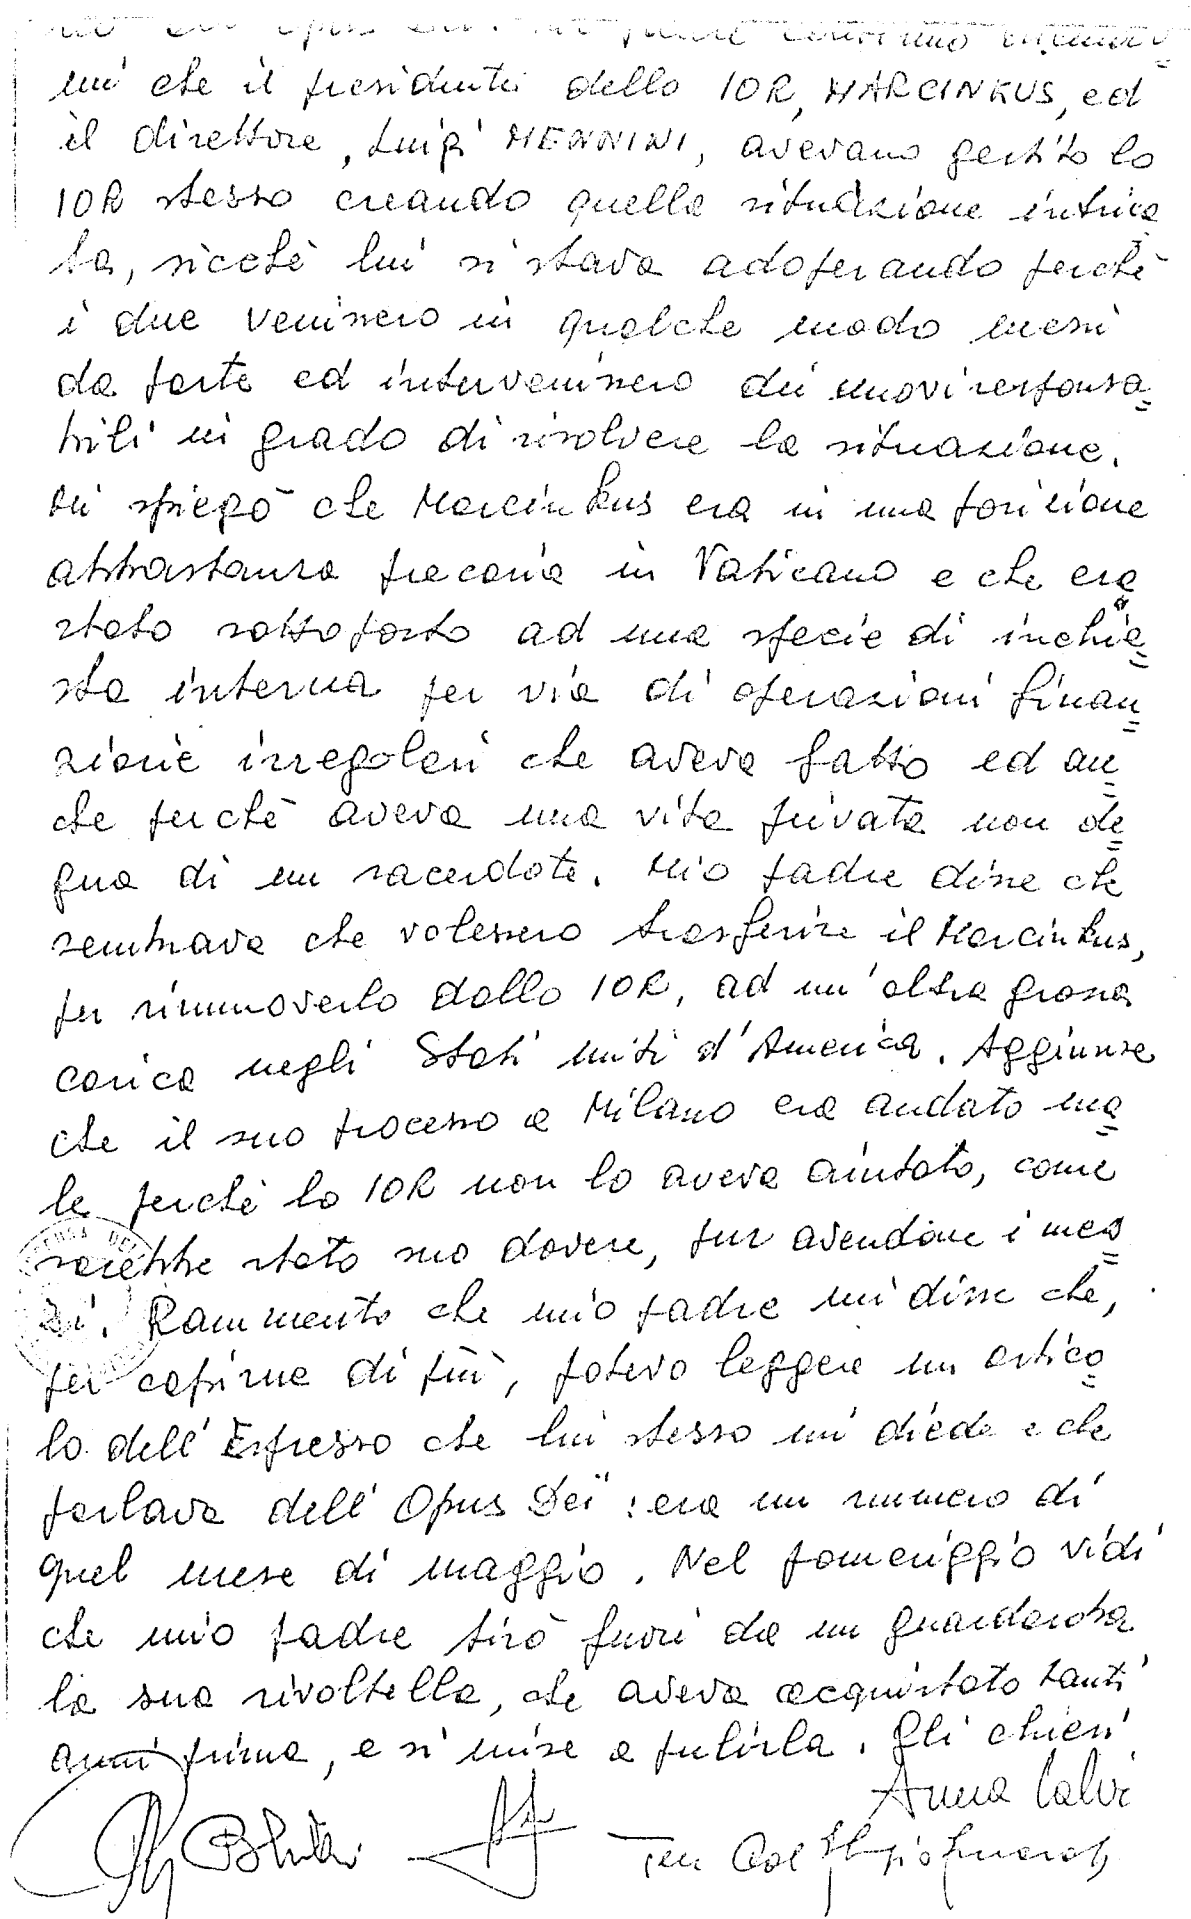 mi che il presidente dello IOR, MARCINKUS, ed
il direttore, Luigi MENNINI, avevano gestito lo
IOR stesso creando quella situazione intrica
ta, sicchè lui si stava adoperando perchè
i due venissero in qualche modo messi
da parte ed intervenissero dei nuovi responsa=
bili in grado di risolvere la situazione.
Mi spiegò che Marcinkus era in una posizione
abbastanza precaria in Vaticano e che era
stato sottoposto ad una specie di inchie=
sta interna per via di operazioni finan=
ziarie irregolari che aveva fatto ed an=
che perchè aveva una vita privata non de=
gna di un sacerdote. Mio padre disse che
sembrava che volessero trasferire il Marcinkus,
per rimuoverlo dallo IOR, ad un'altra grossa
carica negli Stati Uniti d'America. Aggiunse
che il suo processo a Milano era andato ma=
le perchè lo IOR non lo aveva aiutato, come
sarebbe stato suo dovere, pur avendone i mez=
zi. Rammento che mio padre mi disse che,
per capirne di più, potevo leggere un artico=
lo dell'Espresso che lui stesso mi diede e che
parlava dell'Opus Dei: era un numero di
quel mese di maggio. Nel pomeriggio vidi
che mio padre tirò fuori da un guardaroba
la sua rivoltella, che aveva acquistato tanti
anni prima, e si mise a pulirla. Gli chiesi
Anna Calvi
Ten Col